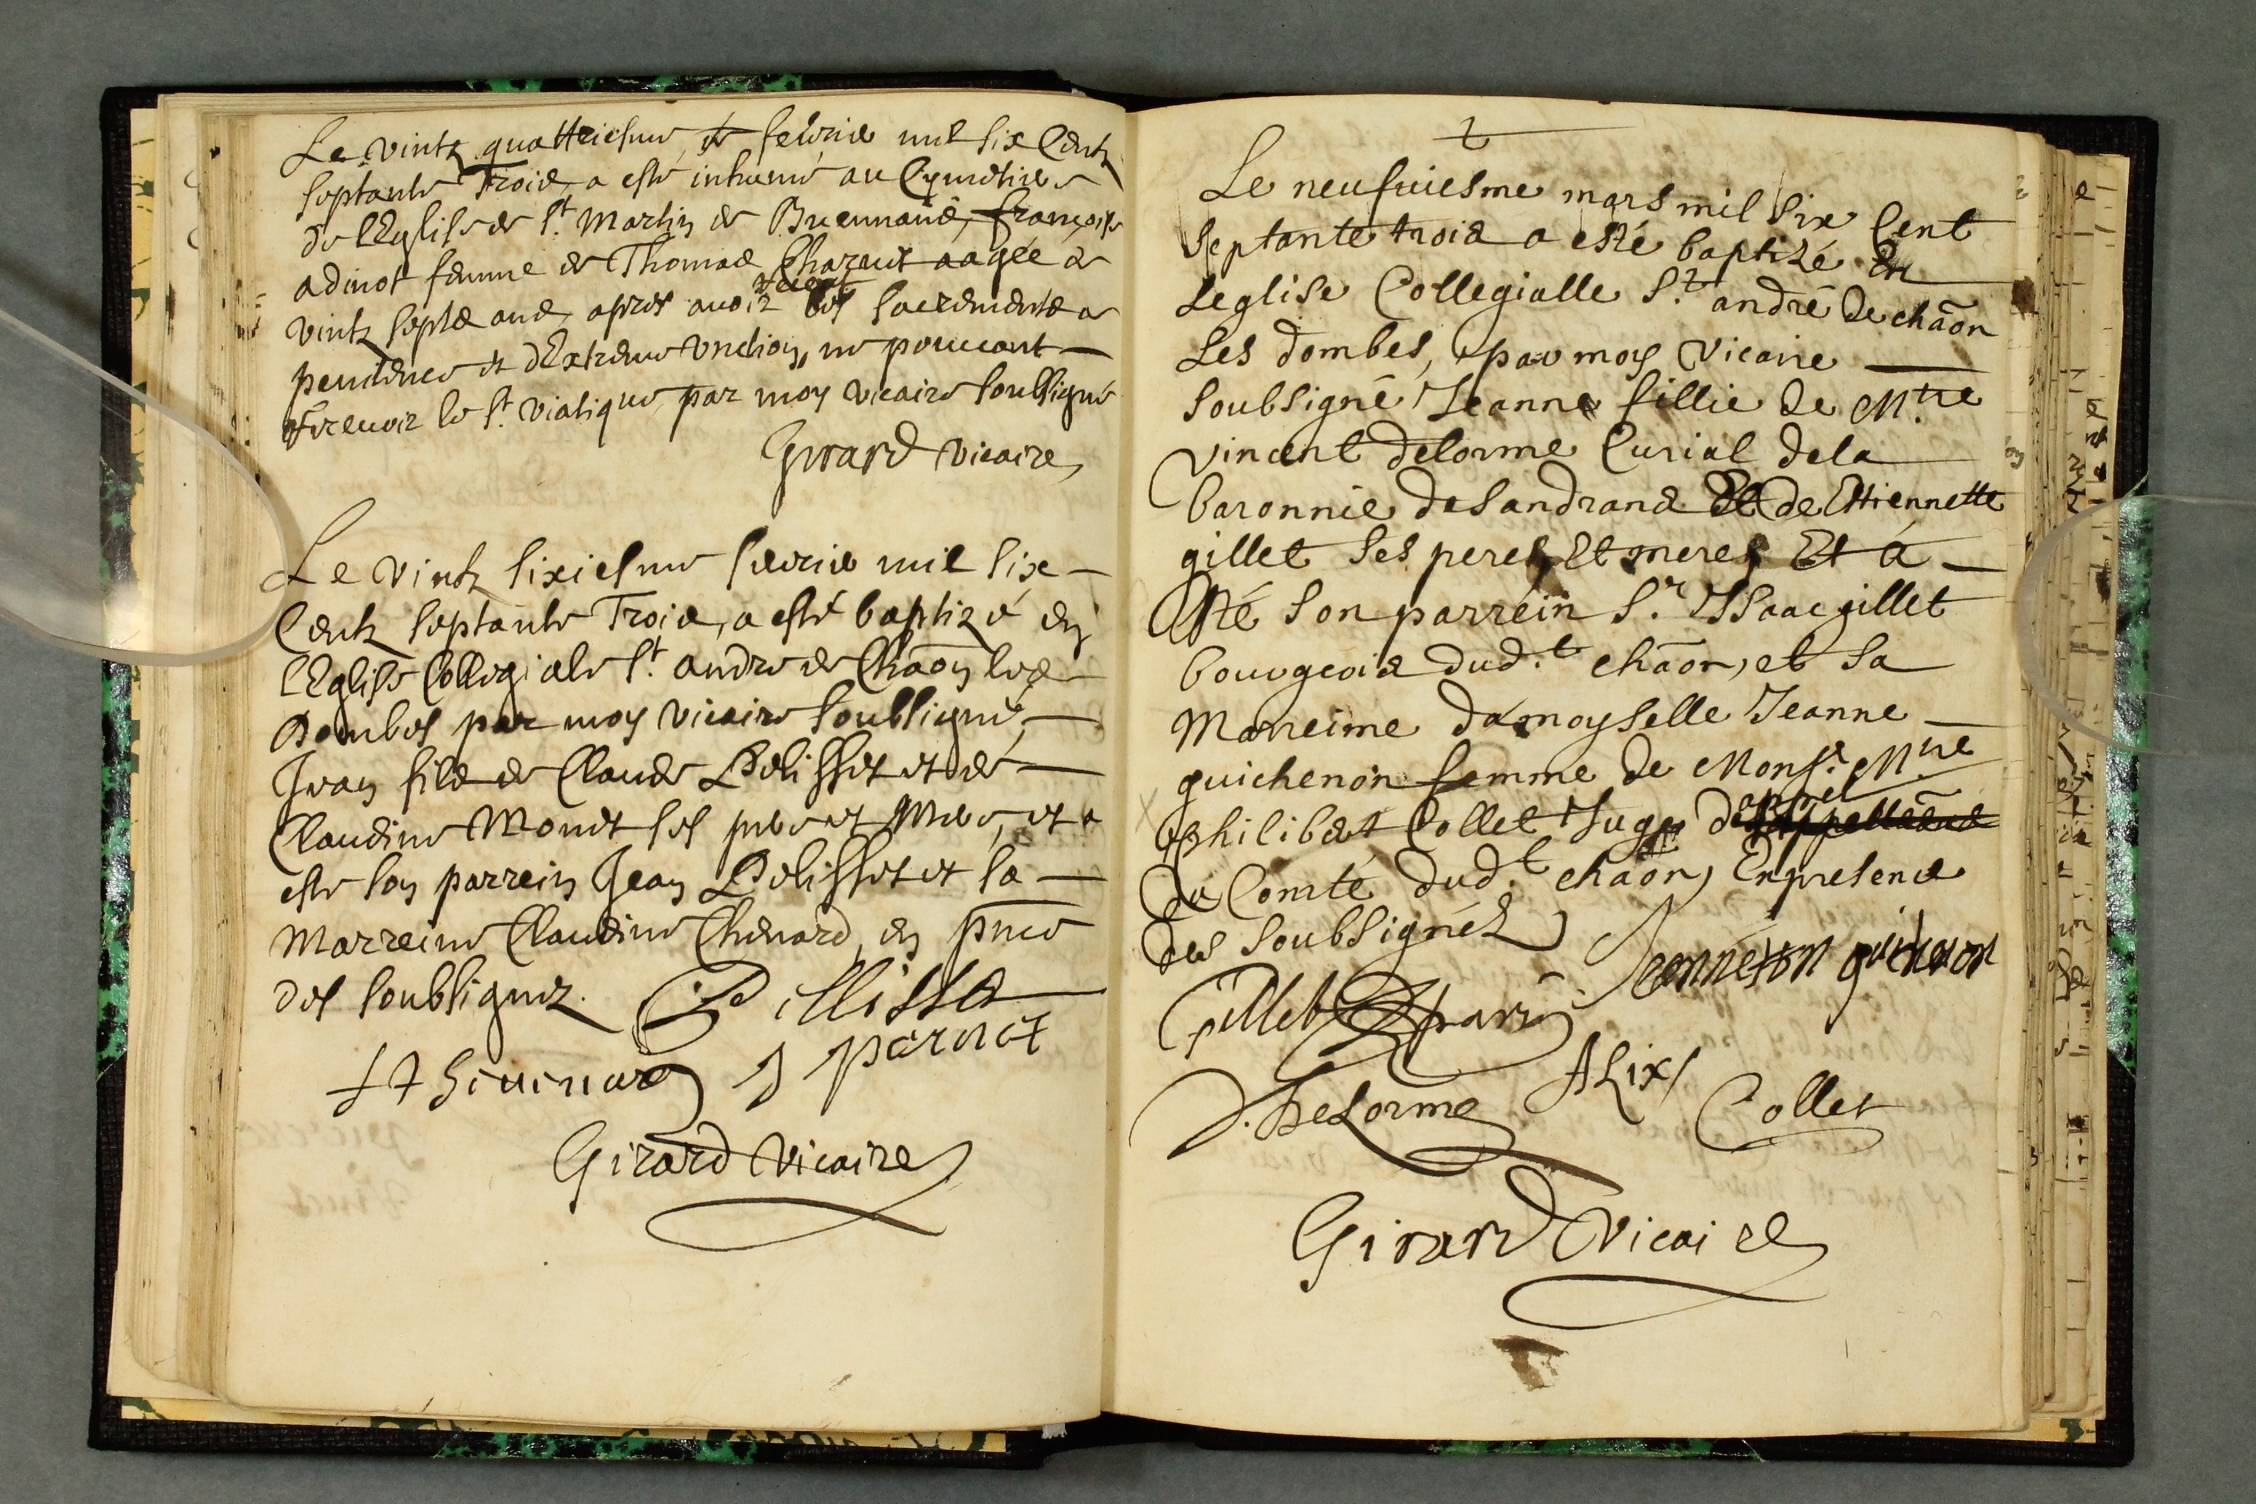 Le vintz quattriesme febvrier mil six Centz
septante Trois, a esté inhumé au Cymetiere
de lEglise de St. Martin de Buennans, françoise
adinot femme de Thomas Charvet aagée de
vintz septs ans, apres avoir receut les sacrements de
penitence et dExtreme Unction, ne pouuant
recevoir le St. viatique, par moy vicaire soubsigné
Girard vicaire
Le vintz sixiesme febvrier mil six
Centz septante Trois, a esté baptizé en
lEglise Collegiale St. andre de Chãon les
Dombes par moy vicaire soubsigné,
Jean fils de Claude Pelisset et de
Claudine Monet ses pere et Mere, et a
esté son parrein Jean Pelisset et sa
Marreine Claudine Chenard, en pñce
des soubsignez. Pellisset
Girard Vicaire
Le neufuiesme mars mil six Cent
septante trois a esté baptizé En
Leglise Collegialle St. andré de chãon
Les dombes, par moy vicaire
soubsigné Jeanne fillie de Mtre
vincent delorme Curial dela
baronnie de sandrans Et de Ettiennette
gillet ses peres Et meres Et a
Esté son parrein Sr. Issaac gillet
bourgeois dudt. chãon, et sa
Marreime damoyselle Jeanne
guichenon femme de Monsr. Mtre
philibert Collet Juge d'appel
du Comté dudt. chãon, En presence
des soubsignéz Jeanneton guichenon
Gillet parrin
Delorme ALix Collet
Girard Vicaire